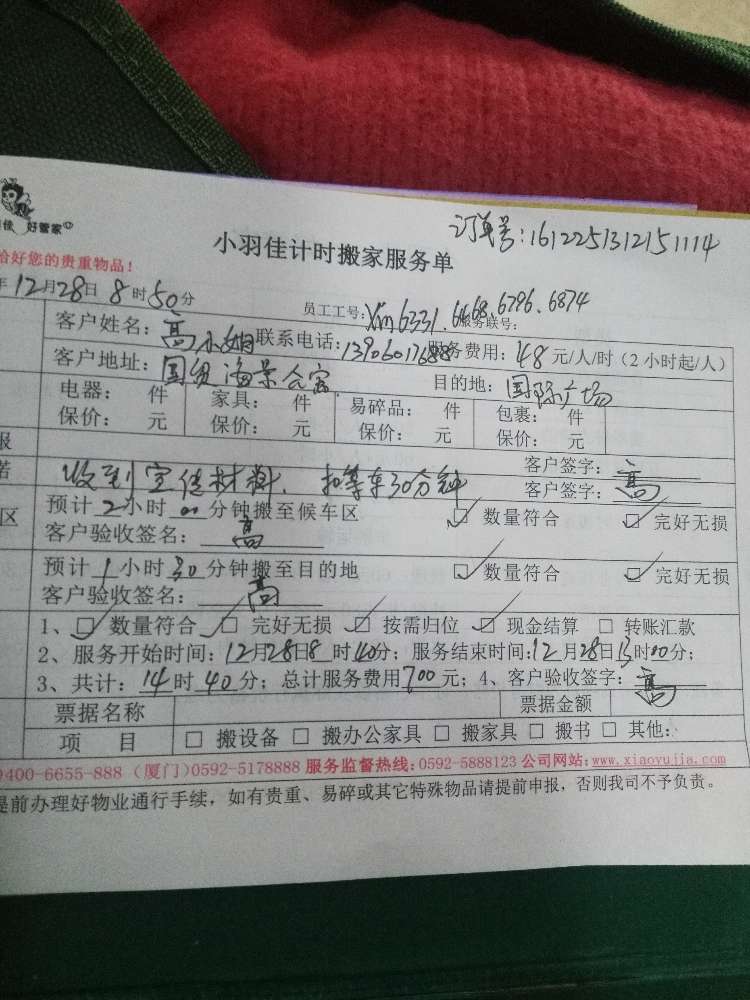 佳 好管家
订单号：161225131215​1114
小羽佳计时搬家服务单
给好您的贵重物品！
年12月28日 8时50分
员工工号：xm6331.6468.6796.6874
服务联号：
客户姓名：高小姐 联系电话：13906017688 服务费用：48元/人/时（2小时起/人）
客户地址：国贸海景公寓 目的地：国际广场
电器： 件 家具： 件 易碎品： 件 包裹： 件
保价： 元 保价： 元 保价： 元 保价： 元
报 客户签字：
诺 收到宣传材料、扣等车30分钟 客户签字：高
区 预计2小时00分钟搬至候车区 ☑ 数量符合 ☑ 完好无损
客户验收签名：高
预计1小时30分钟搬至目的地 ☑ 数量符合 ☑ 完好无损
客户验收签名：高
1、☑ 数量符合 ☑ 完好无损 ☑ 按需归位 ☑ 现金结算 □ 转账汇款
2、服务开始时间：12月28日8时40分；服务结束时间：12月28日13时00分；
3、共计：14时40分；总计服务费用700元；4、客户验收签字：高
票据名称 票据金额
项 目 □ 搬设备 □ 搬办公家具 □ 搬家具 □ 搬书 □ 其他：
9400-6655-888（厦门）0592-5178888 服务监督热线：0592-5888123 公司网站：www.xiaoyujia.com
提前办理好物业通行手续，如有贵重、易碎或其它特殊物品请提前申报，否则我司不予负责。